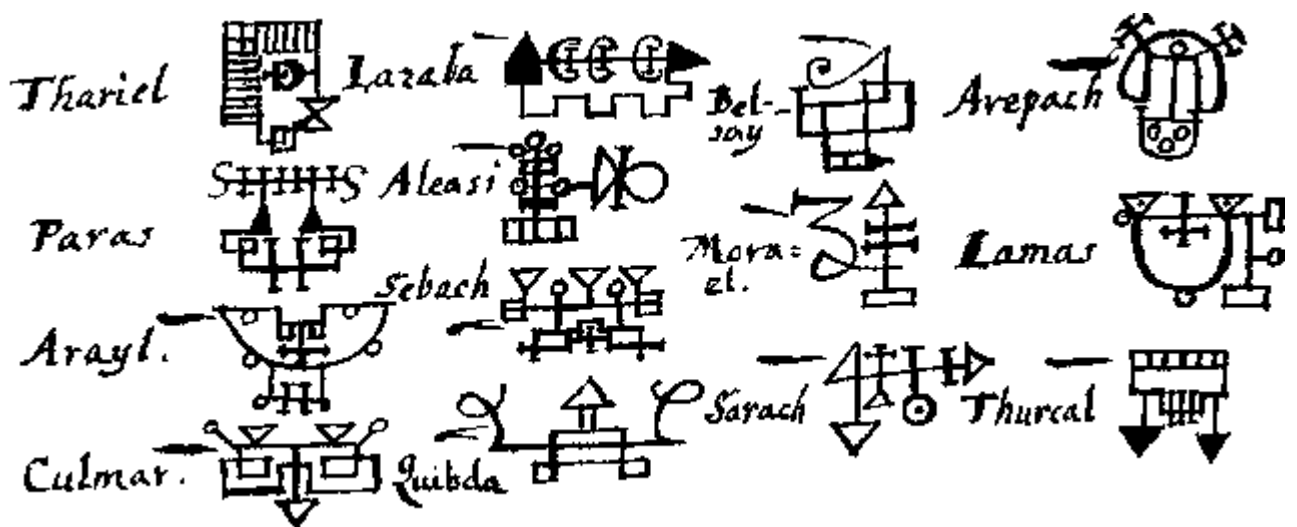 Thariel
Lazaba
Bel-
say
Arepach
Paras
Aleasi
Mora=
el.
Lamas
Arayl.
Sebach
Sarach
Thurcal
Culmar.
Quibda